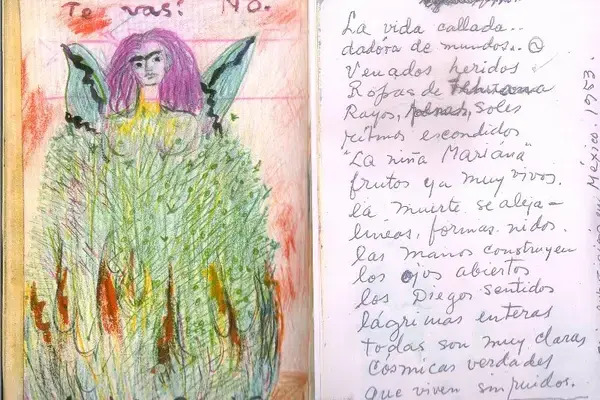 Te vas? No.
La vida callada..
dadora de mundos..
Venados heridos
Ropas de Tehuana
Rayos, penas, Soles
ritmos escondidos
"La niña Mariana"
frutos ya muy vivos.
la muerte se aleja –
lineas, formas. nidos.
las manos construyen
los ojos abiertos
los Diegos sentidos
lágrimas enteras
todas son muy claras
Cósmicas verdades
que viven sin ruidos.
México 1953.